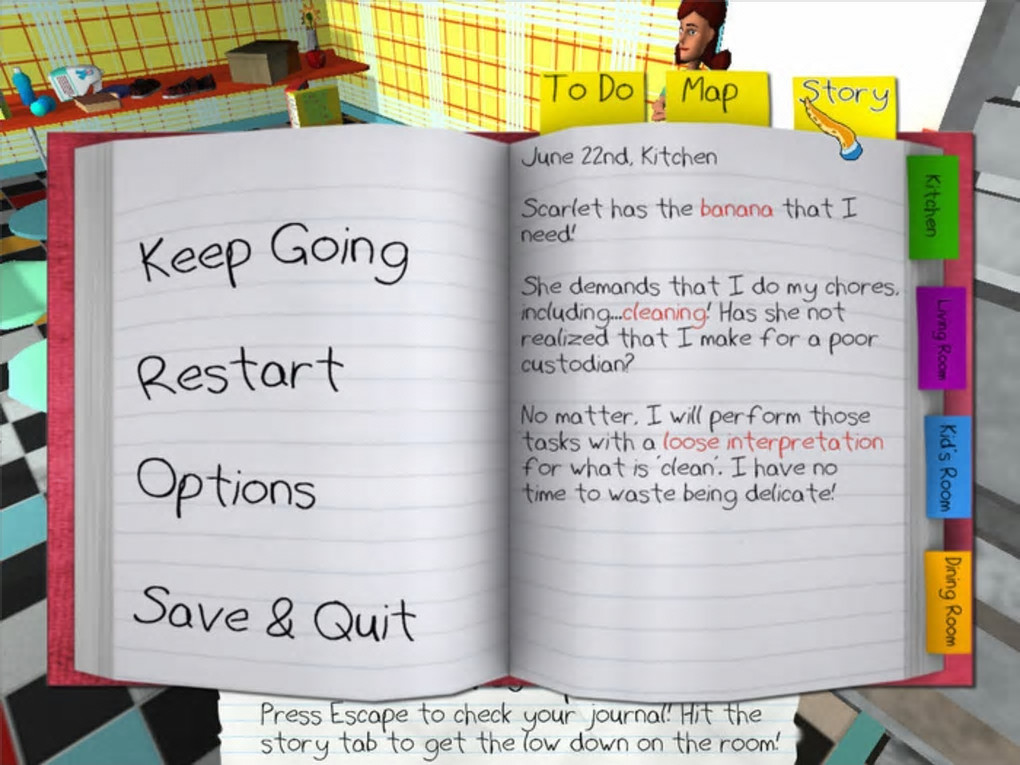 To Do
Map
Story
Keep Going
Restart
Options
Save & Quit
June 22nd, Kitchen
Scarlet has the banana that I
need!
She demands that I do my chores,
including...cleaning! Has she not
realized that I make for a poor
custodian?
No matter, I will perform those
tasks with a loose interpretation
for what is 'clean'. I have no
time to waste being delicate!
Kitchen
Living Room
Kid's Room
Dining Room
Press Escape to check your journal! Hit the
story tab to get the low down on the room!